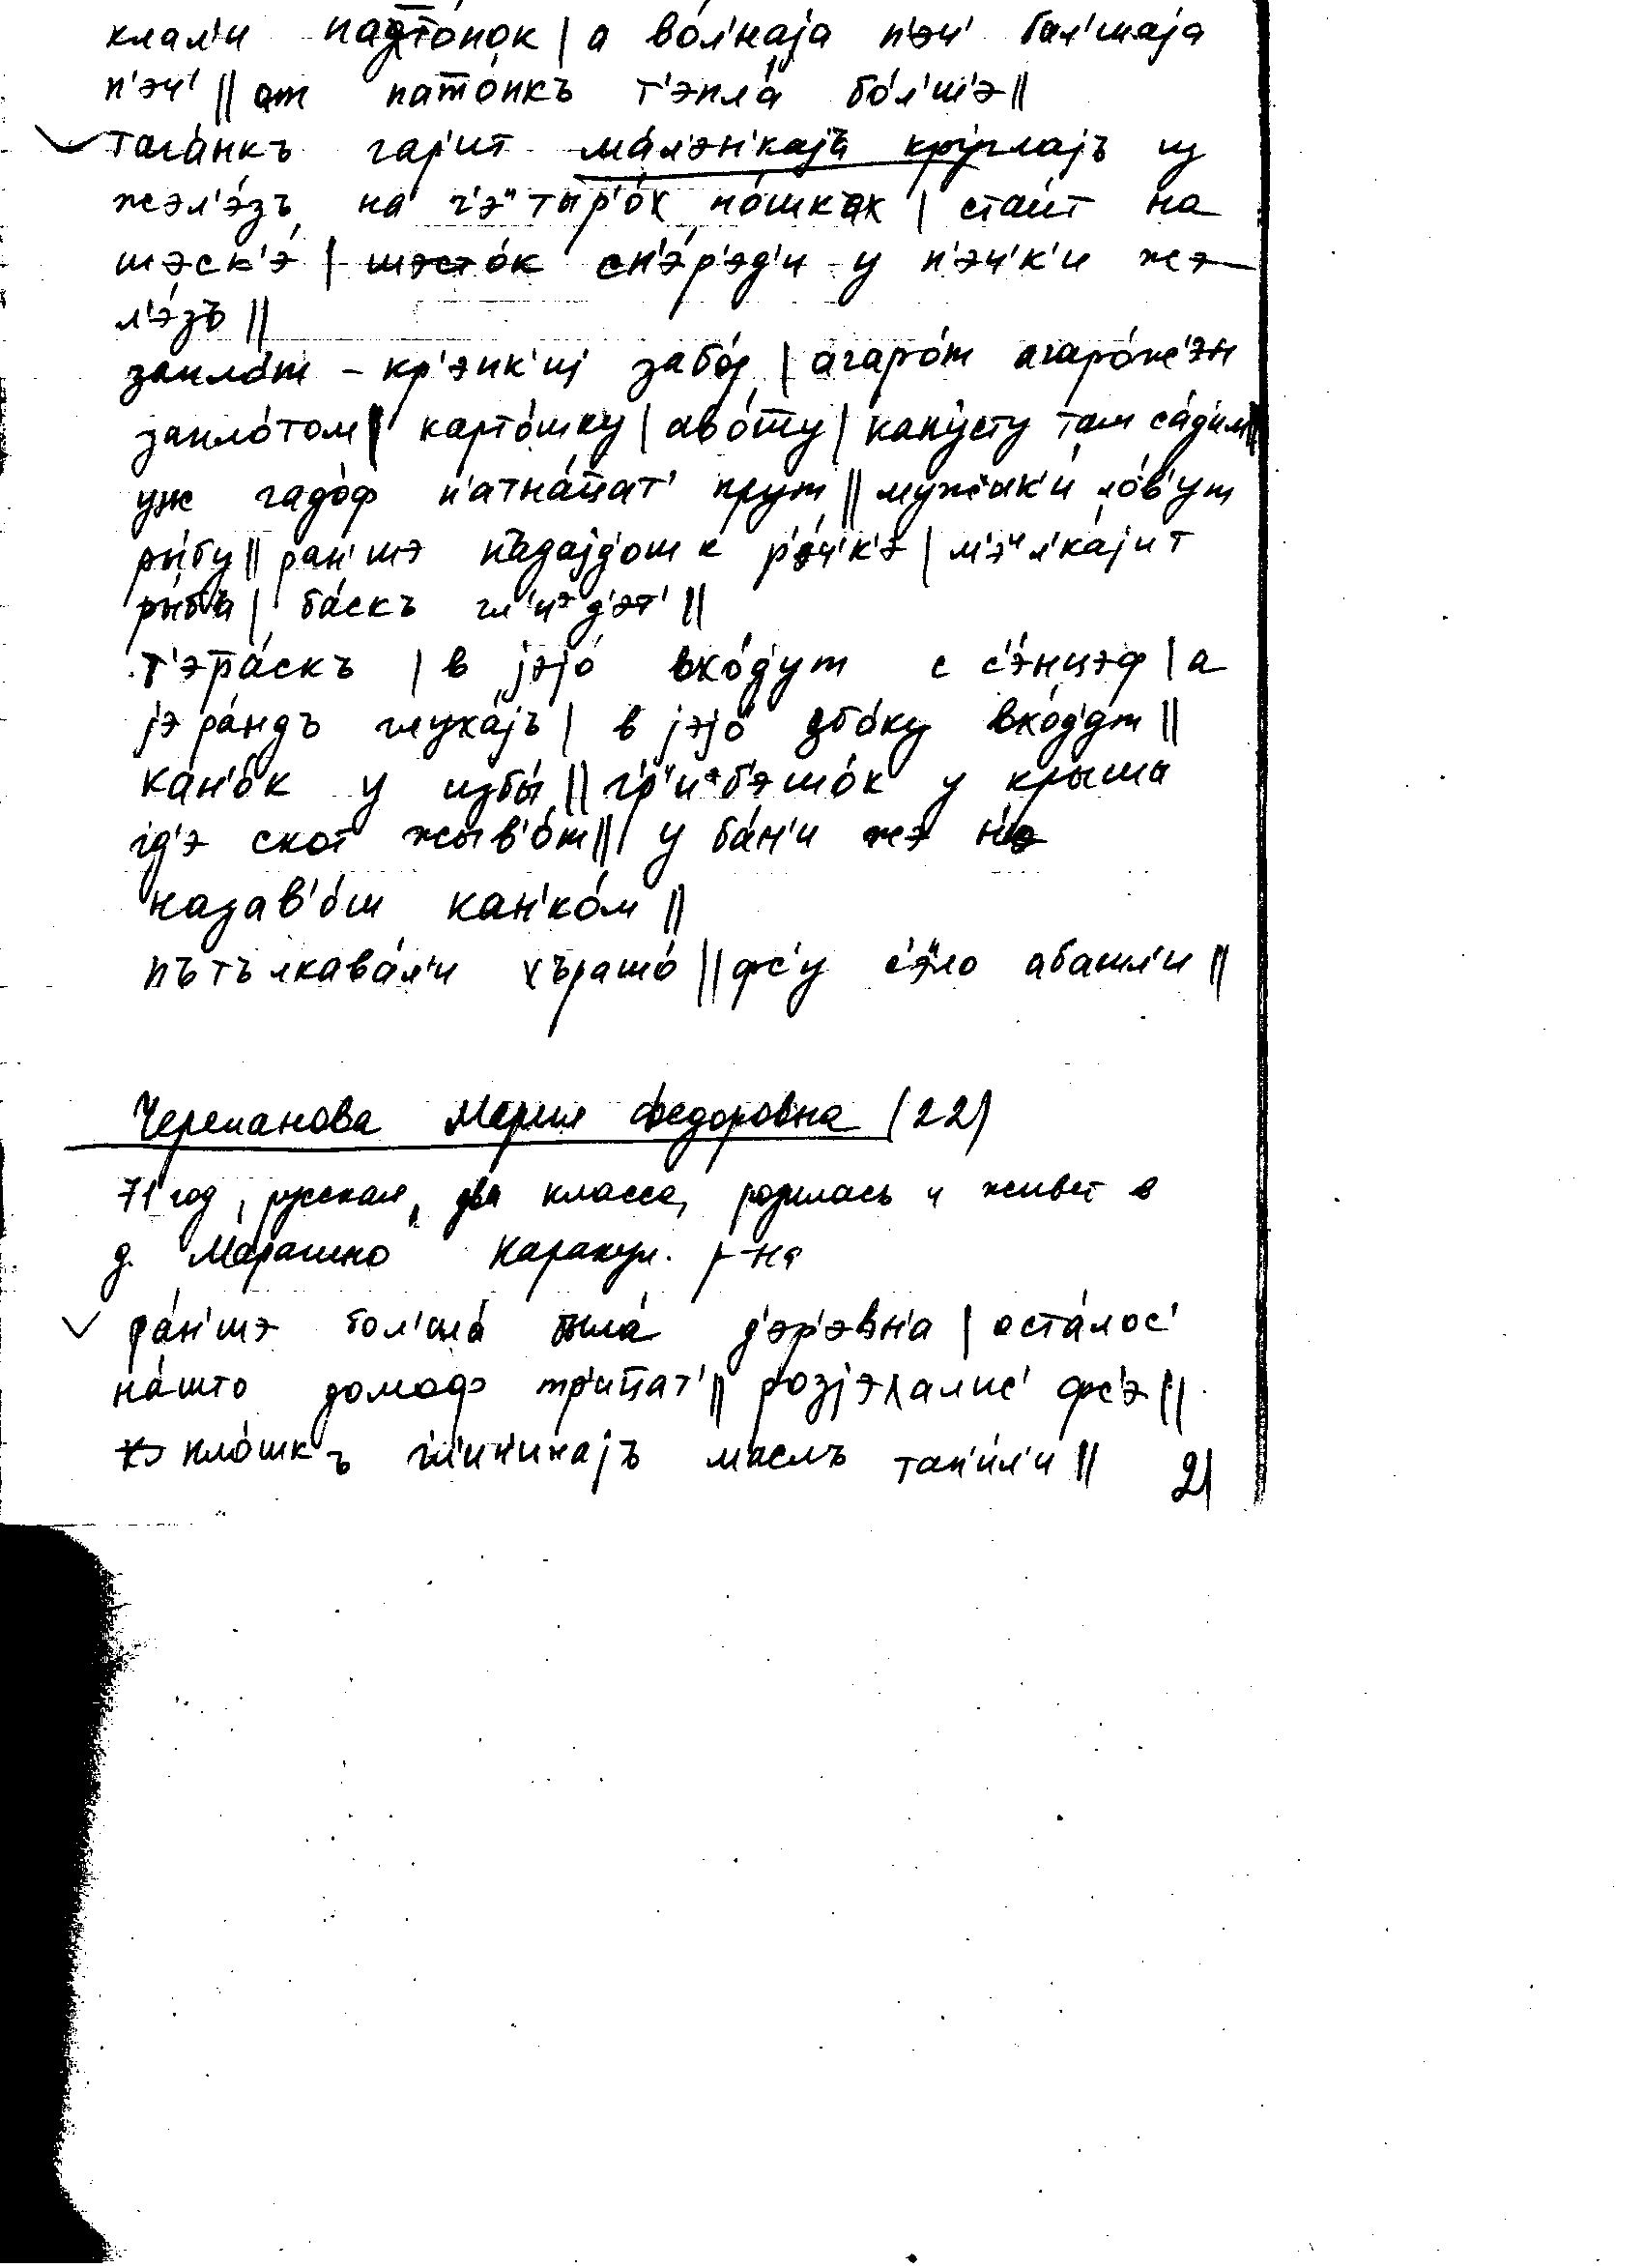 клал'и патто́пок | а во́л'наја п'эч' бал'шаја
п'эч' || ат патопкъ т'эпла́ бо́л'шэ ||
тага́нкъ гар'ит ма́л'эн'кајъ кру́глајъ из
жэл'э́зъ на ч'эᶦтыр'о́х но́шках | стаи́т на
шэск'э́ | шэсто́к сп'э́р'эд'и у п'эч'к'и жэ
л'э́зъ ||
запло́т - кр'эпк'иј забо́р | агаро́т агаро́жэн
запло́том | карто́шку | капу́сту там са́дим ||
уж гадо́ф п'атна́цат' прут || мужык'и́ ло́в'ут
ры́бу || ран'шэ падајд'ош к р'э́ч'к'э |
ры́бъ | ба́скъ гл'иᵊд'эт' ||
т'эра́скъ | в јэјо́ вхо́д'ут с с'э́нцэф | а
јэра́ндъ глуха́јъ | в јэјо́ збо́ку вхо́д'ут ||
кан'о́к у избы́ || гр'иᵊб'эшо́к у крышы
гд'э скот жыв'о́т || у ба́н'и жэ н'э
назав'о́ш кан'ко́м ||
пътълкава́л'и хърашо́ || фс'у с'эло абашл'и ||
Черепанова Мария Федоровна (22)
71 год, русская, два класса, родилась и живет в
д. Марашно Каракул. р-на
ра́н'шэ бол'ша́ была́ д'эр'эвн'а | оста́лос'
на́што домоф тр'ицат' || розјэхалис' фс'э ||
пло́шкъ гл'ин'инајъ маслъ тап'и́л'и ||
21